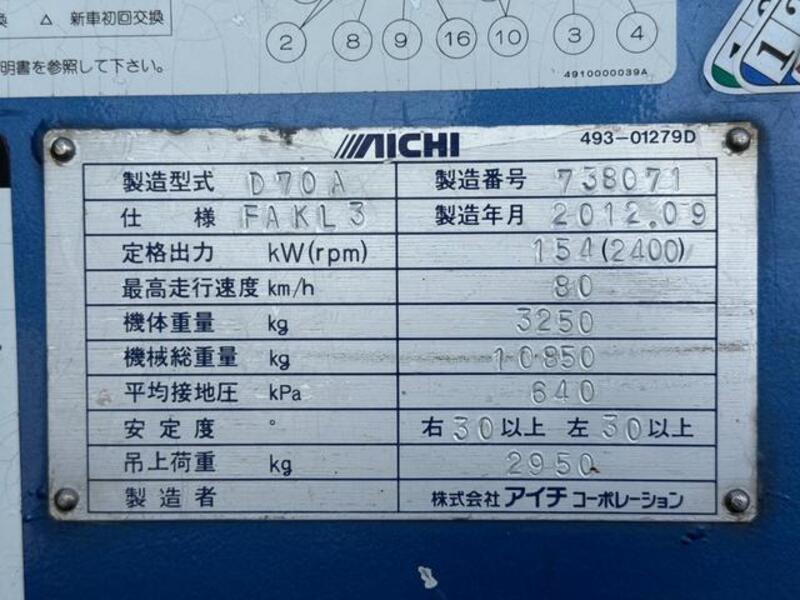 換 △ 新車初回交換
明書を参照して下さい。
2 8 9 16 10 3 4
4910000039A
AICHI 493-01279D
製造型式 D70A 製造番号 738071
仕様 FAKL3 製造年月 2012.09
定格出力 kW(rpm) 154(2400)
最高走行速度 km/h 80
機体重量 kg 3250
機械総重量 kg 10850
平均接地圧 kPa 640
安定度 ° 右30以上 左30以上
吊上荷重 kg 2950
製造者 株式会社アイチコーポレーション